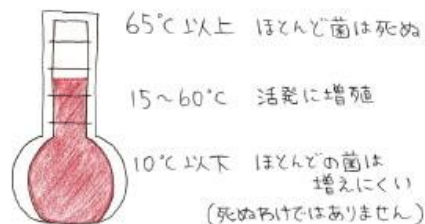 65℃以上 ほとんど菌は死ぬ
15～60℃ 活発に増殖
10℃以下 ほとんどの菌は
増えにくい
(死ぬわけではありません)